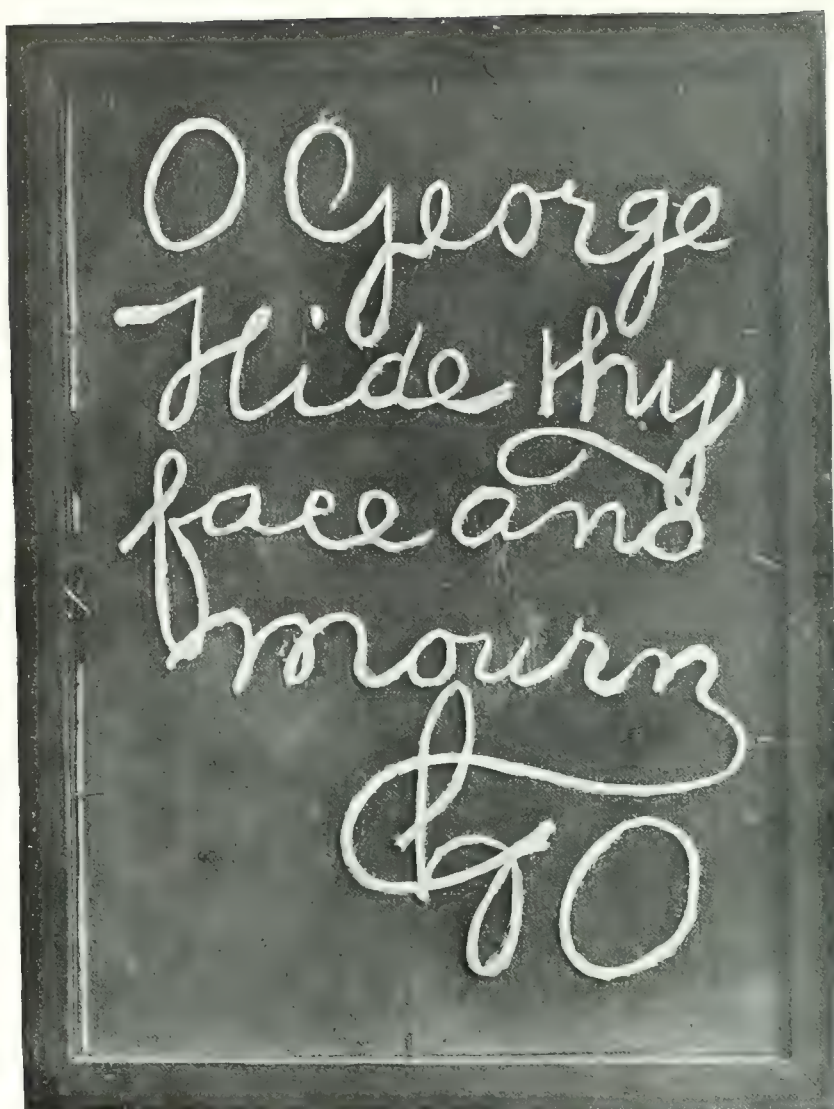 O George
Hide thy
face and
mourn
O